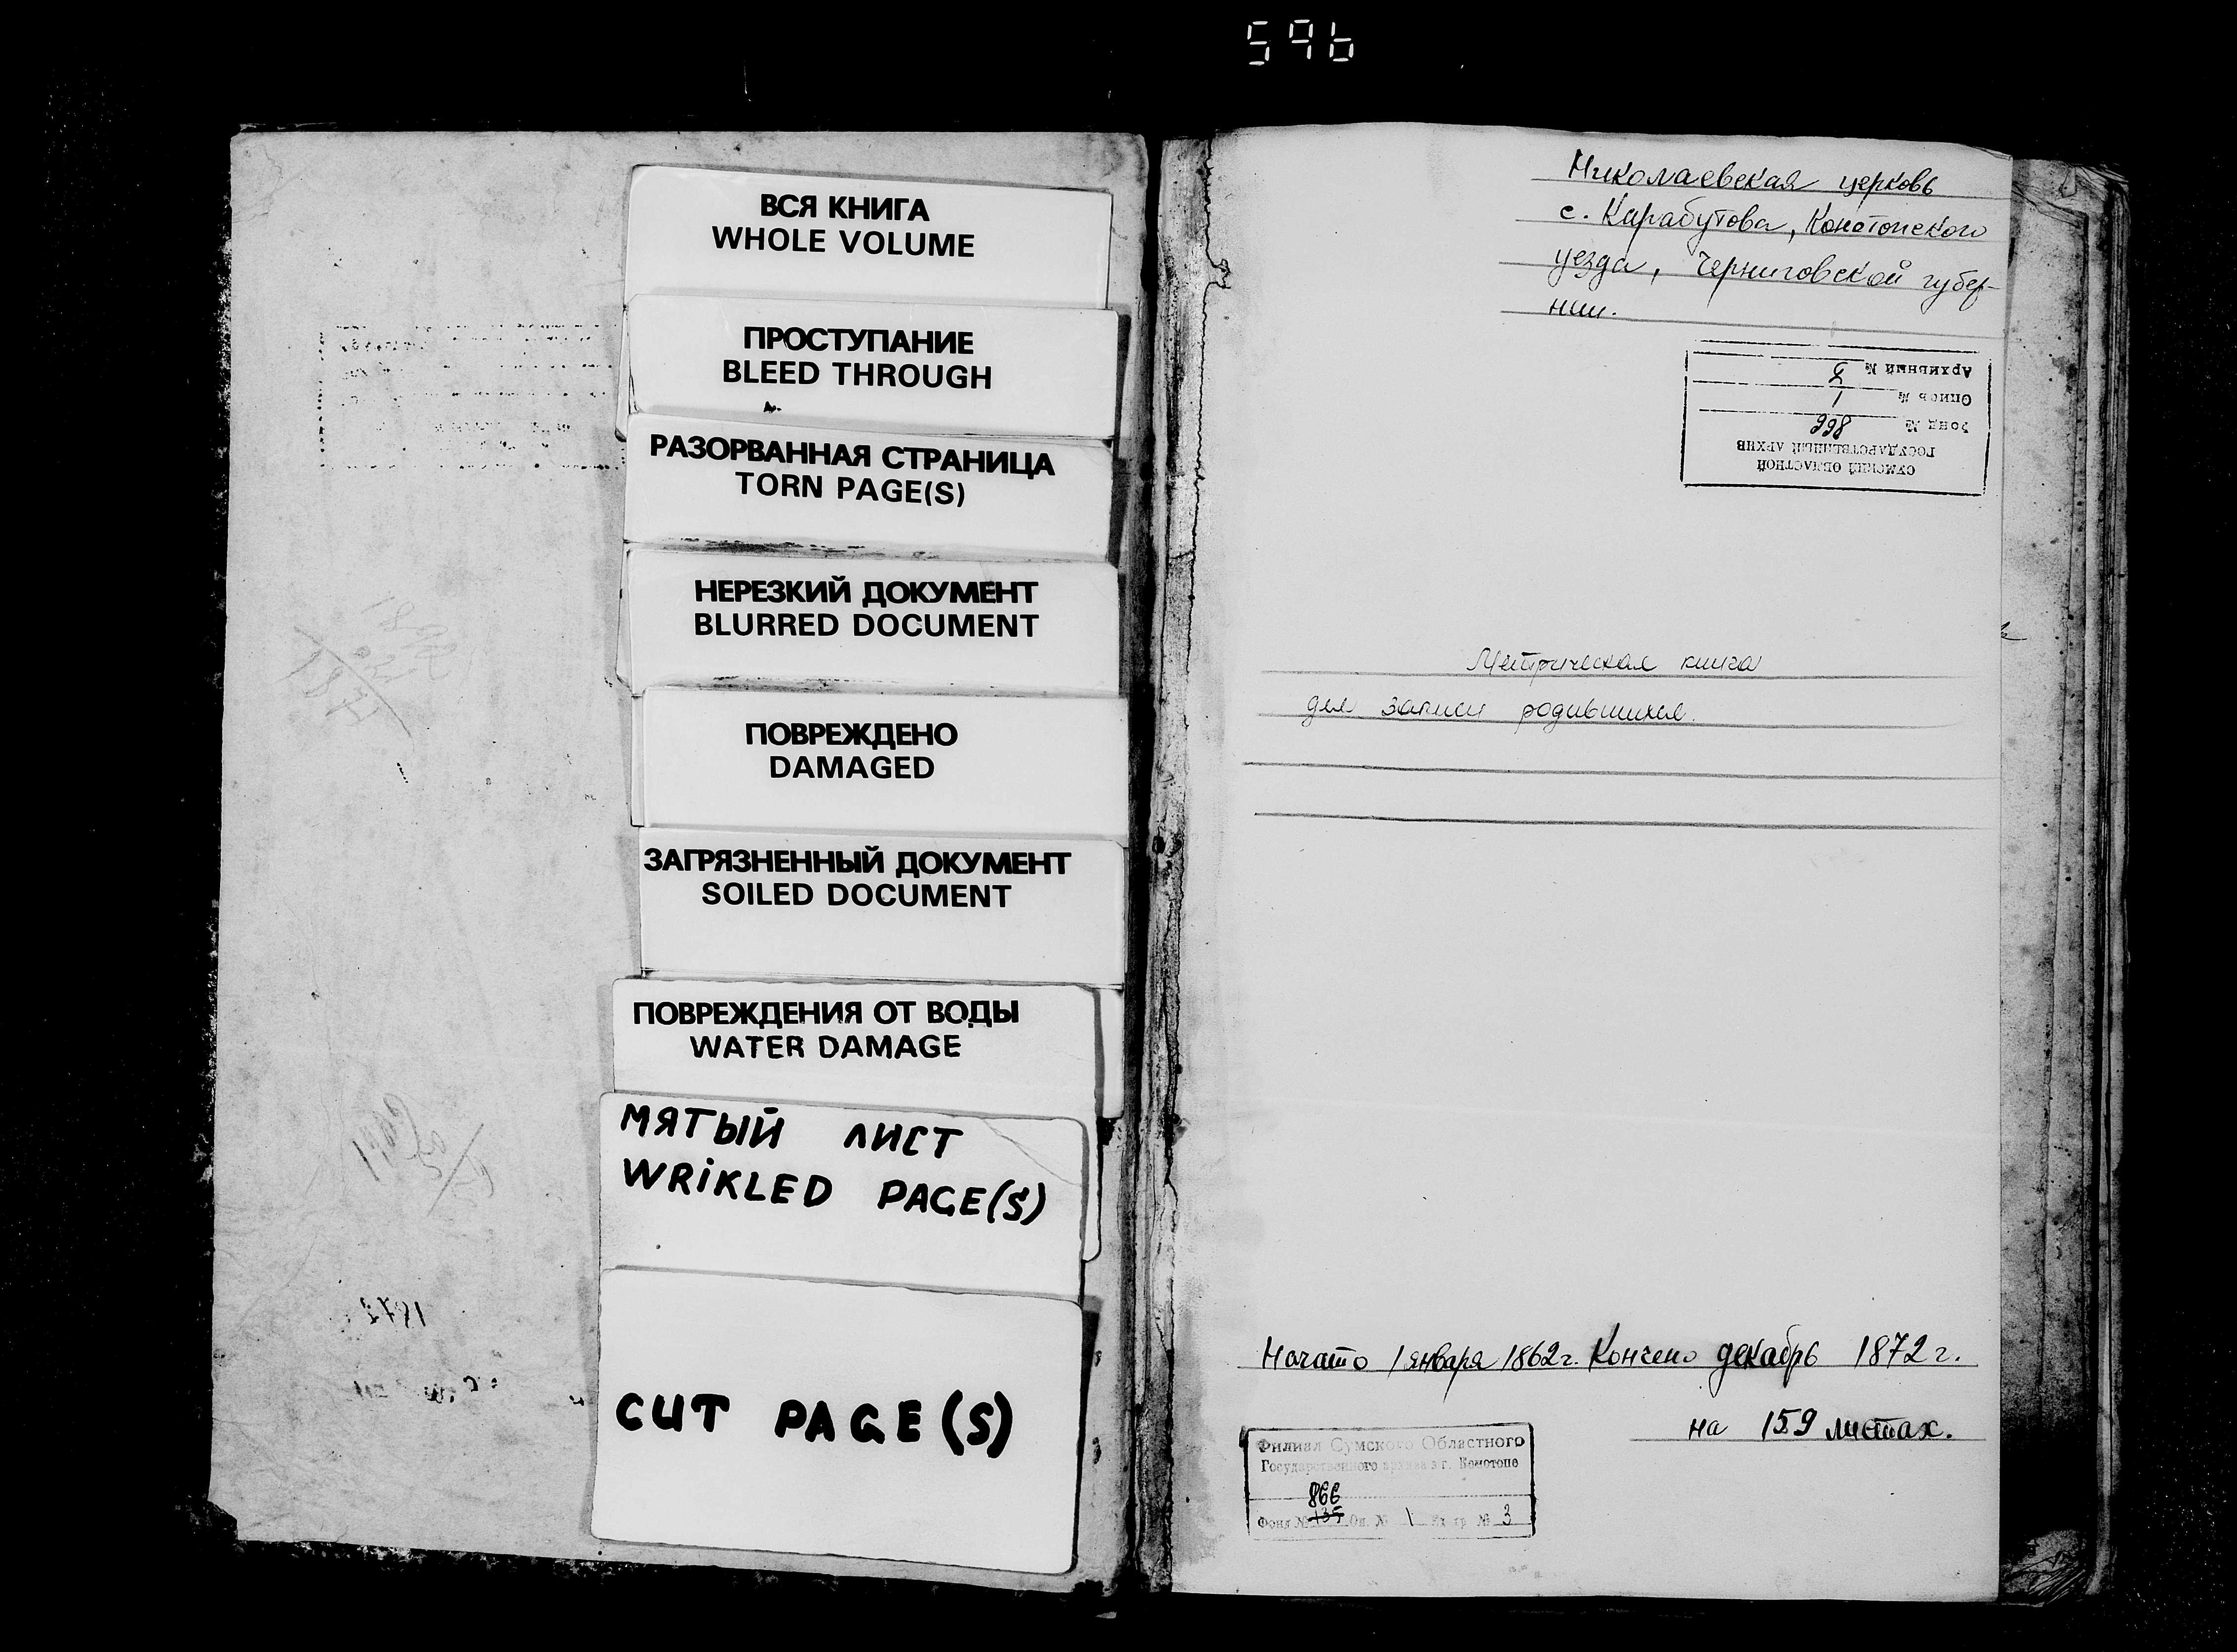 596
ВСЯ КНИГА
WHOLE VOLUME
ПРОСТУПАНИЕ
BLEED THROUGH
РАЗОРВАННАЯ СТРАНИЦА
TORN PAGE(S)
НЕРЕЗКИЙ ДОКУМЕНТ
BLURRED DOCUMENT
ПОВРЕЖДЕНО
DAMAGED
ЗАГРЯЗНЕННЫЙ ДОКУМЕНТ
SOILED DOCUMENT
ПОВРЕЖДЕНИЯ ОТ ВОДЫ
WATER DAMAGE
МЯТЫЙ ЛИСТ
WRIKLED PAGE(S)
CUT PAGE(S)
1872
Николаевская церковь
с. Карабутова, Конотопского
уезда, Черниговской губер-
нии.
СУМСКИЙ ОБЛАСТНОЙ
ГОСУДАРСТВЕННЫЙ АРХИВ
Фонд № 866
Опись № 1
Архивный № 3
Метрическая книга
для записи родившихся.
Начато 1 января 1862 г. Кончено декабрь 1872 г.
на 159 листах.
Филиал Сумского Областного
Государственного архива в г. Конотопе
866
Фонд № 135 Оп. № 1 Ед. хр № 3